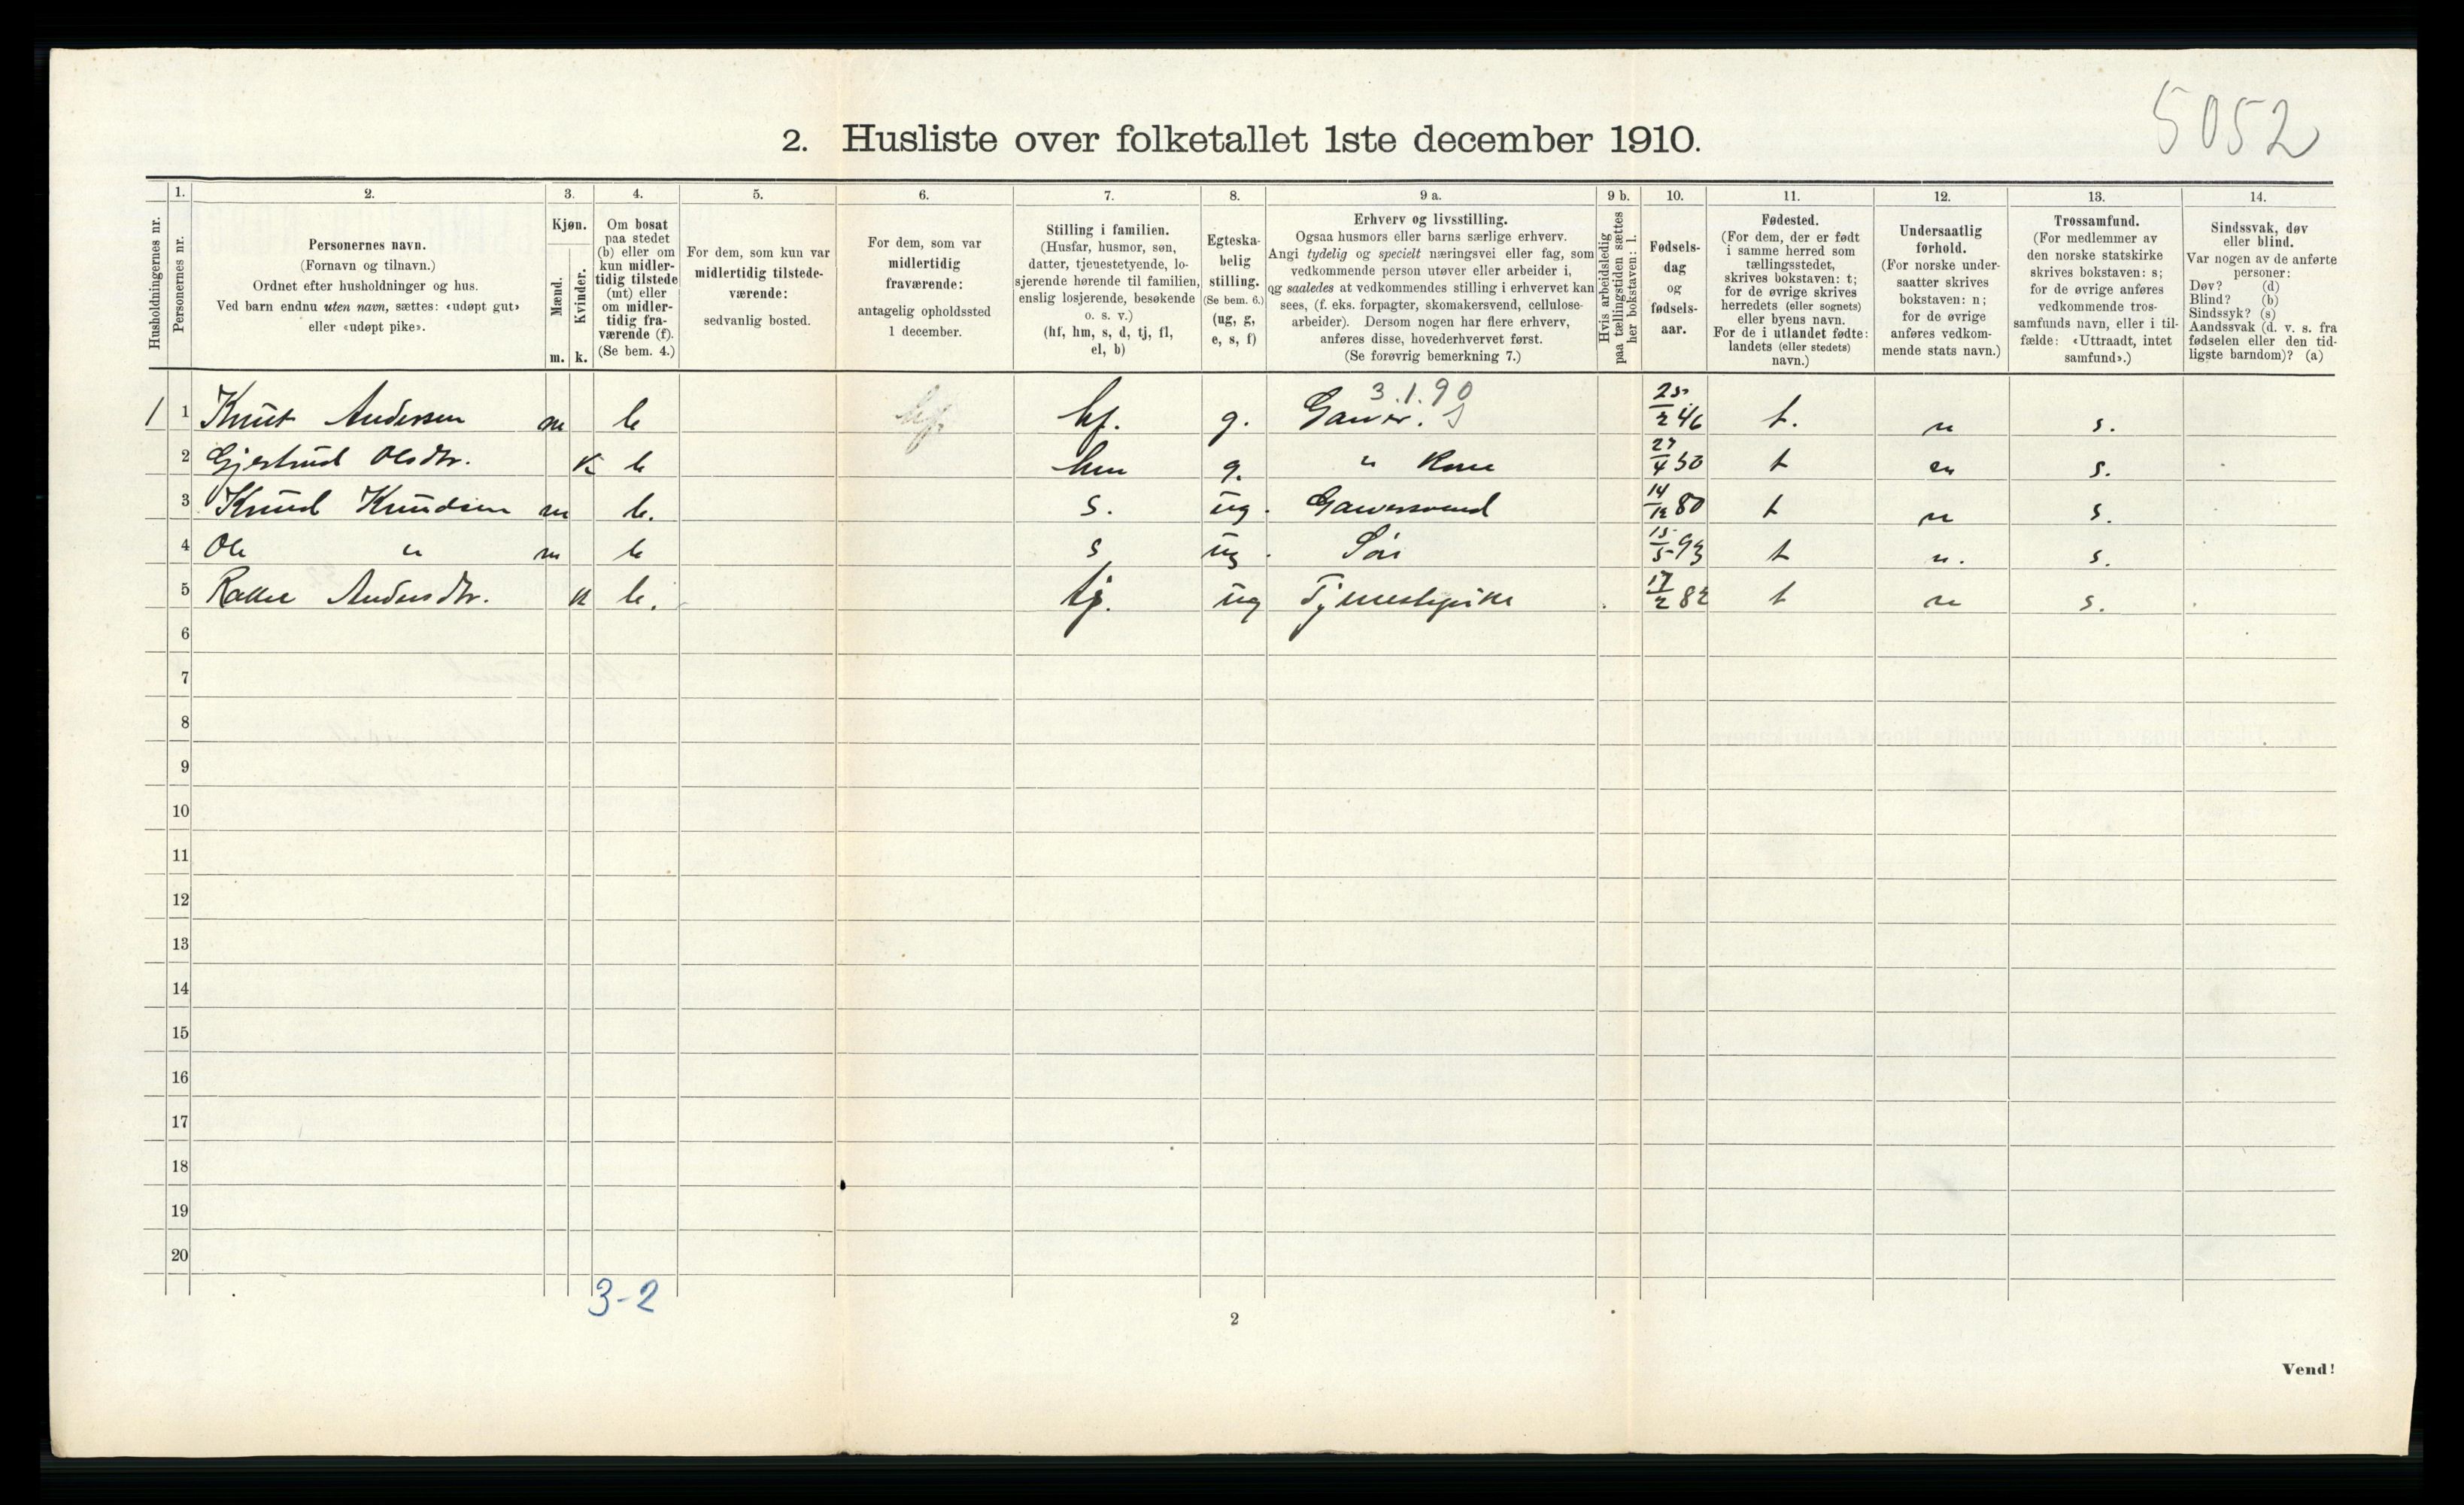 5052
2. Husliste over folketallet 1ste december 1910.
1. 2. 3. 4. 5. 6. 7. 8. 9 a. 9 b. 10. 11. 12. 13. 14.
Husholdningernes nr.
Personernes nr.
Personernes navn.
(Fornavn og tilnavn.)
Ordnet efter husholdninger og hus.
Ved barn endnu uten navn, sættes: «udøpt gut»
eller «udøpt pike».
Kjøn.
Mænd.
Kvinder.
m. k.
Om bosat
paa stedet
(b) eller om
kun midler-
tidig tilstede
(mt) eller
om midler-
tidig fra-
værende (f).
(Se bem. 4.)
For dem, som kun var
midlertidig tilstede-
værende:
sedvanlig bosted.
For dem, som var
midlertidig
fraværende:
antagelig opholdssted
1 december.
Stilling i familien.
(Husfar, husmor, søn,
datter, tjenestetyende, lo-
sjerende hørende til familien,
enslig losjerende, besøkende
o. s. v.)
(hf, hm, s, d, tj, fl,
el, b)
Egteska-
belig
stilling.
(Se bem. 6.)
(ug, g,
e, s, f)
Erhverv og livsstilling.
Ogsaa husmors eller barns særlige erhverv.
Angi tydelig og specielt næringsvei eller fag, som
vedkommende person utøver eller arbeider i,
og saaledes at vedkommendes stilling i erhvervet kan
sees, (f. eks. forpagter, skomakersvend, cellulose-
arbeider). Dersom nogen har flere erhverv,
anføres disse, hovederhvervet først.
(Se forøvrig bemerkning 7.)
Hvis arbeidsledig
paa tællingstiden sættes
her bokstaven: l.
Fødsels-
dag
og
fødsels-
aar.
Fødested.
(For dem, der er født
i samme herred som
tællingsstedet,
skrives bokstaven: t;
for de øvrige skrives
herredets (eller sognets)
eller byens navn.
For de i utlandet fødte:
landets (eller stedets)
navn.)
Undersaatlig
forhold.
(For norske under-
saatter skrives
bokstaven: n;
for de øvrige
anføres vedkom-
mende stats navn.)
Trossamfund.
(For medlemmer av
den norske statskirke
skrives bokstaven: s;
for de øvrige anføres
vedkommende tros-
samfunds navn, eller i til-
fælde: «Uttraadt, intet
samfund».)
Sindssvak, døv
eller blind.
Var nogen av de anførte
personer:
Døv? (d)
Blind? (b)
Sindssyk? (s)
Aandssvak (d. v. s. fra
fødselen eller den tid-
ligste barndom)? (a)
3.1.90
1 1 Knut Andersen m b hf. g. Garver. 25/2 46 t. n s.
2 Gjertrud Olsdtr. k b hm g. " Kone 27/4 50 t n s.
3 Knud Knudsen m b. s. ug. Garversvend 14/12 80 t n s.
4 Ole " m b s ug. Søn 15/5 93 t n. s.
5 Andersdtr. k b. tj. ug Tjenestepike 17/2 82 t n s.
6
7
8
9
10
11
12
13
14
15
16
17
18
19
20
3-2
2
Vend!